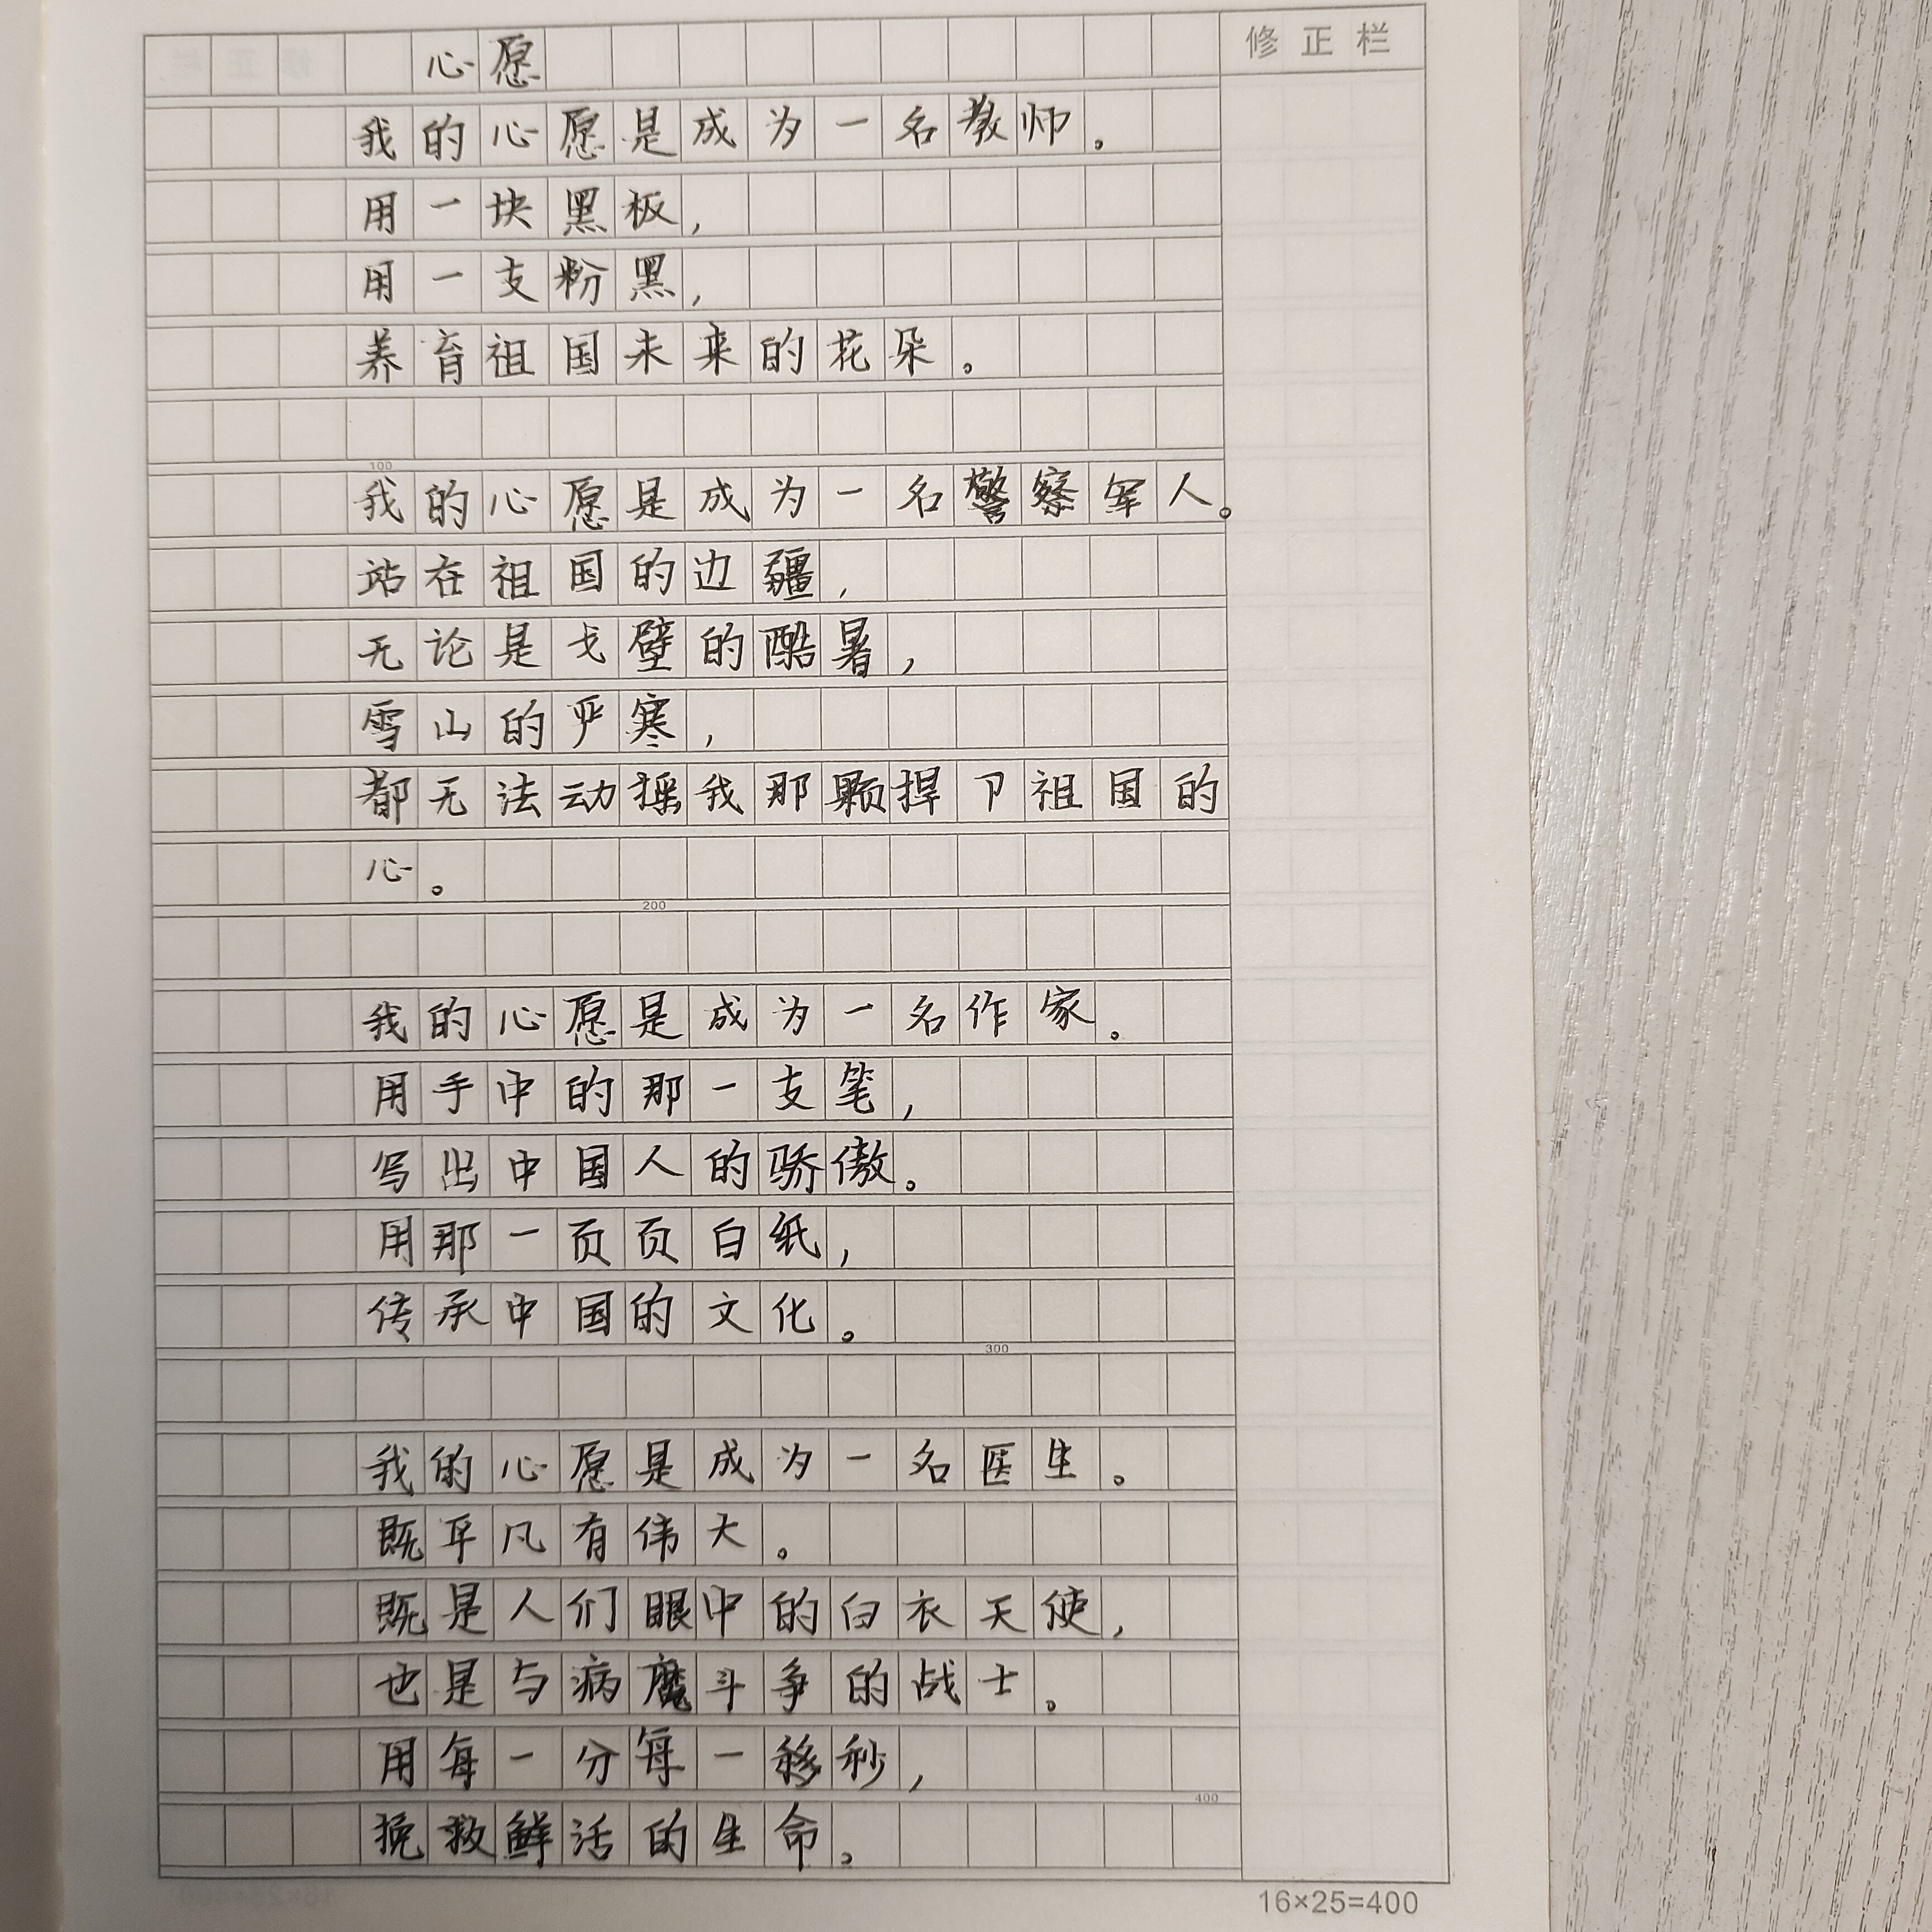 修正栏
心愿
我的心愿是成为一名教师。
用一块黑板,
用一支粉黑,
养育祖国未来的花朵。
100
我的心愿是成为一名警察军人。
站在祖国的边疆,
无论是戈壁的酷暑,
雪山的严寒,
都无法动摇我那颗捍卫祖国的
心。
200
我的心愿是成为一名作家。
用手中的那一支笔,
写出中国人的骄傲。
用那一页页白纸,
传承中国的文化。
300
我的心愿是成为一名医生。
既平凡有伟大。
既是人们眼中的白衣天使,
也是与病魔斗争的战士。
用每一分每一移秒,
400
挽救鲜活的生命。
16×25=400